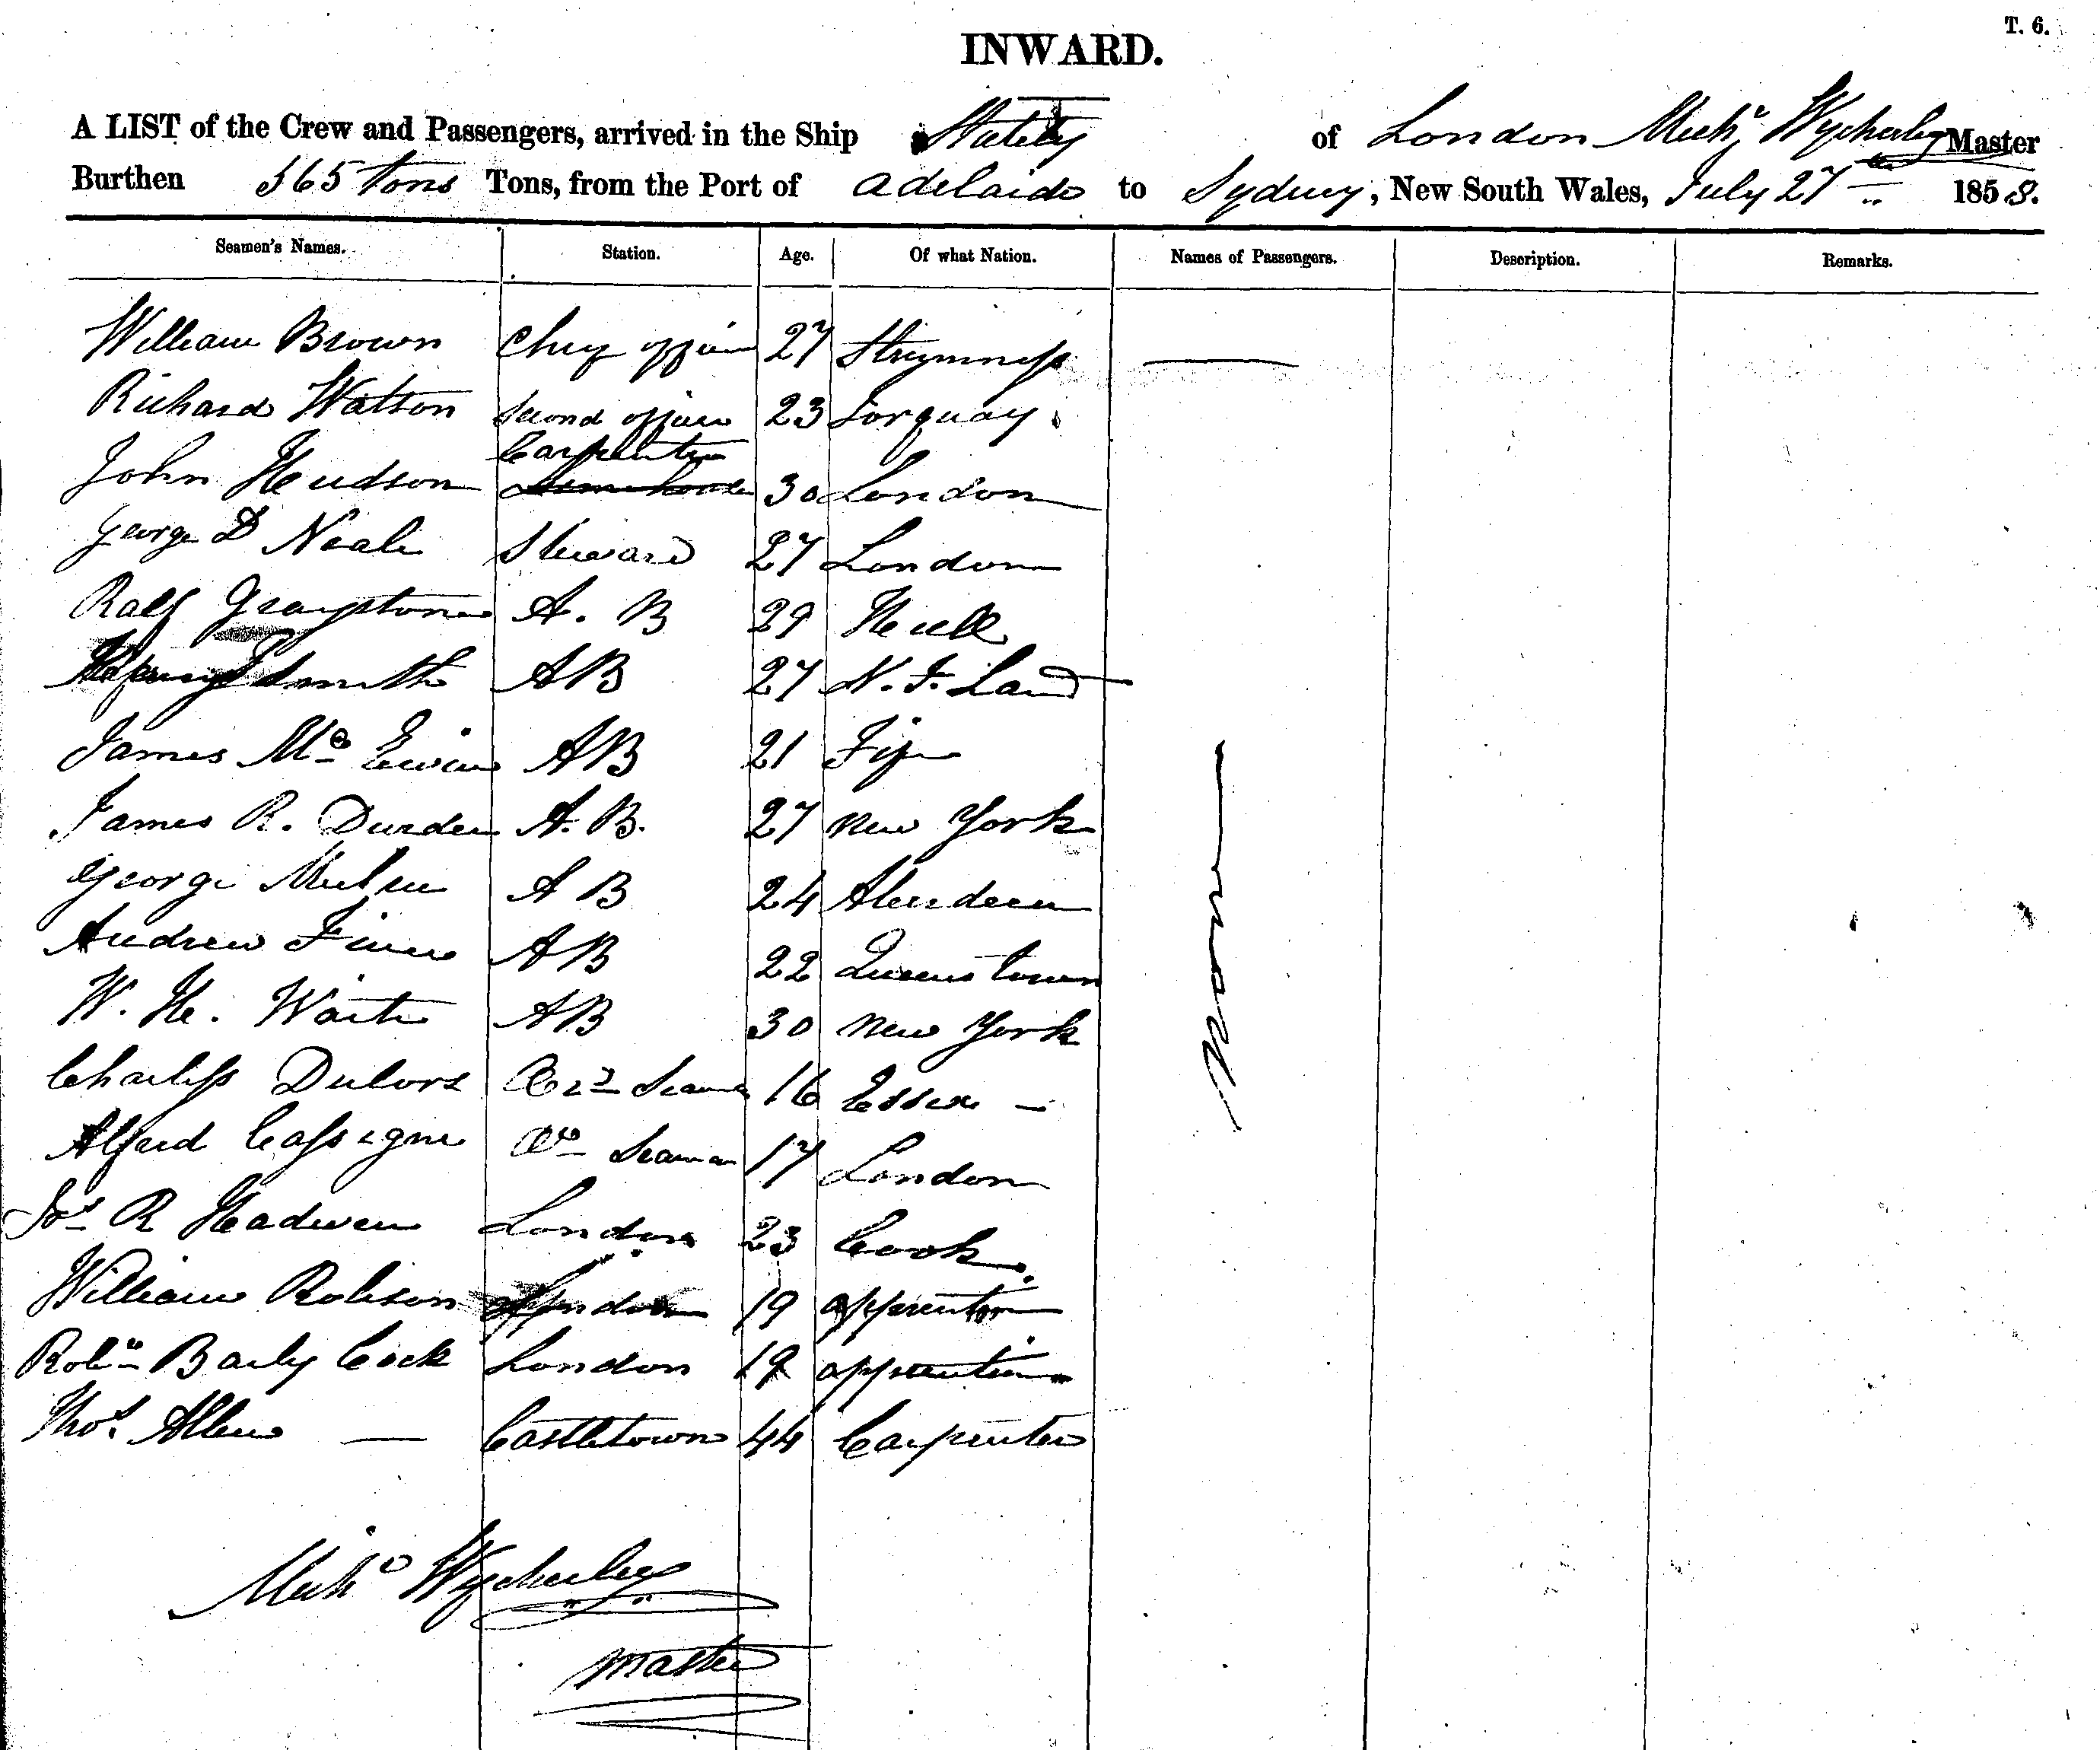 T. 6.
INWARD.
A LIST of the Crew and Passengers, arrived in the Ship Stately of London Mich. Wycherley Master
Burthen 565 Tons Tons, from the Port of Adelaide to Sydney, New South Wales, July 27th 1858.
Seamen's Names. Station. Age. Of what Nation. Names of Passengers. Description. Remarks.
William Brown Chief officer 27
Richard Watson Second officer 23 Torquay
Carpenter
John Hudson 30 London
George D Neale Steward 27 London
Ralf Graystone A. B 29 Hull
Smith AB 27 N. F. Land
James Mc Ewin AB 21 Fife
James R. Durden A. B. 27 New York
George Milne A B 24 Aberdeen
Andrew AB 22 Queenstown
W. H. Waite AB 30 New York
Seaman 16 Essex
Alfred Seaman 17 London
R Hadwen London 23 Cook.
William Robson London 19 apprentice
Baily Cock London 19 apprentice
Thos. Allen — Castletown 44 Carpenter
None
Wycherley
Master